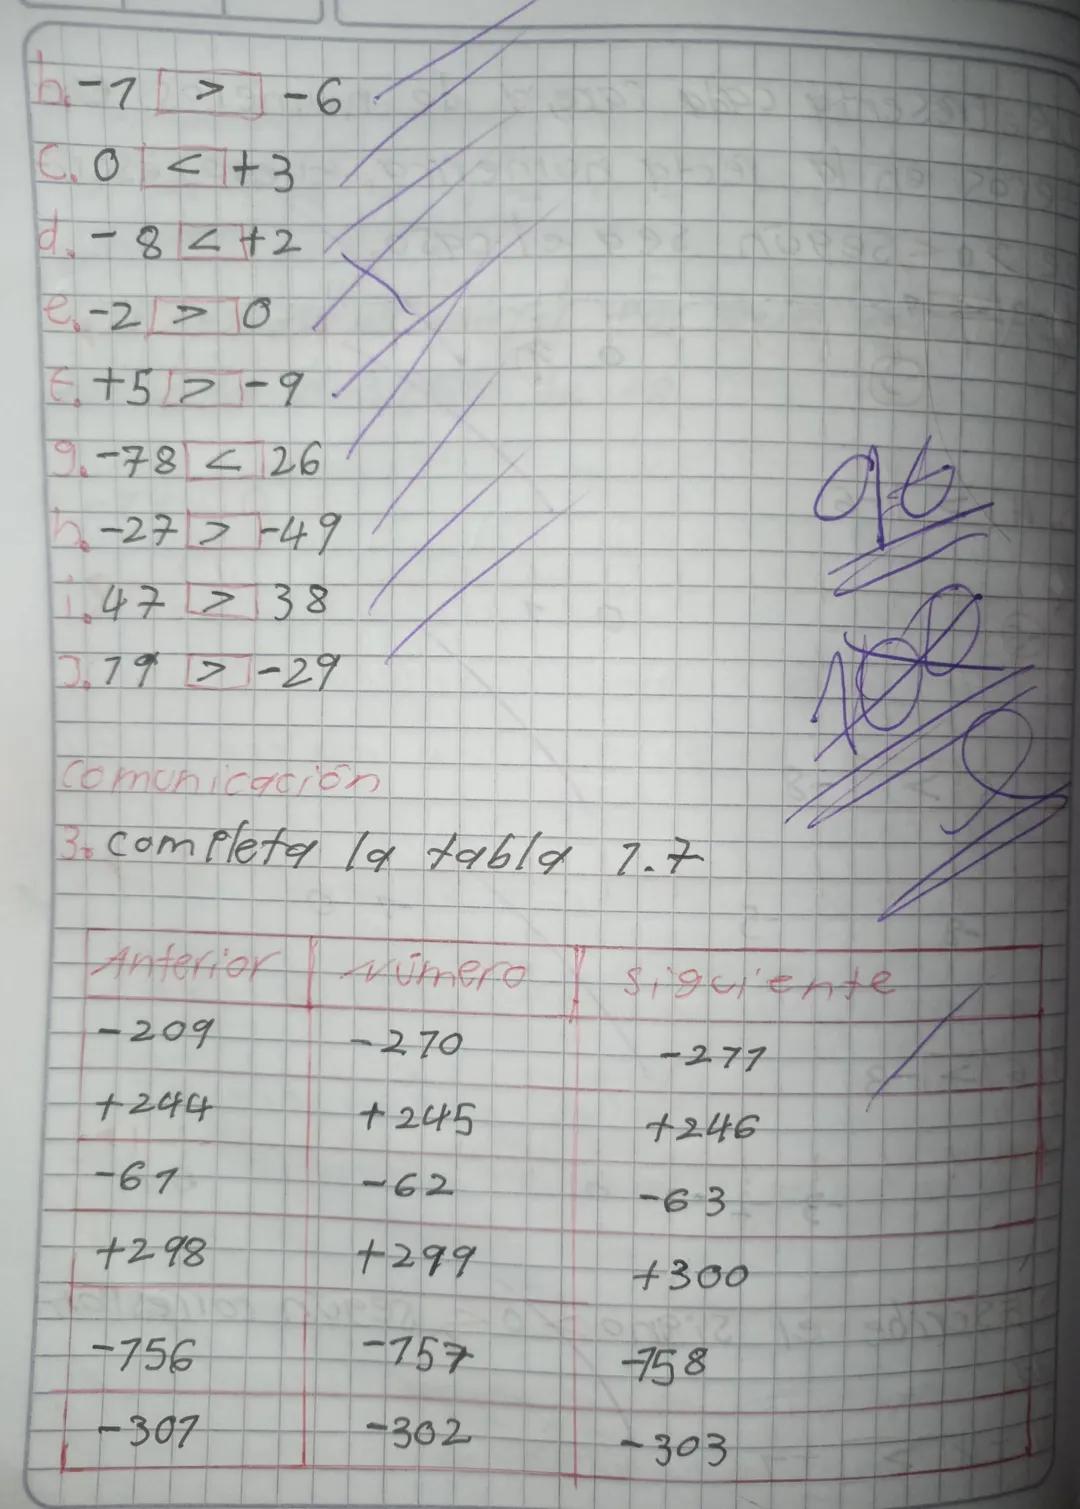 b. -1 > -6
c. 0 < +3
d. -8 < +2
e. -2 > 0
f. +5 > -9
g. -78 < 26
h. -27 > -49
i. 47 > 38
96
J. 19 > -29
100
comunicación
3. completa la tabla 1.7
Anterior Número Siguiente
-209 -210 -211
+244 +245 +246
-61 -62 -63
+298 +299 +300
-156 -157 -158
-301 -302 -303